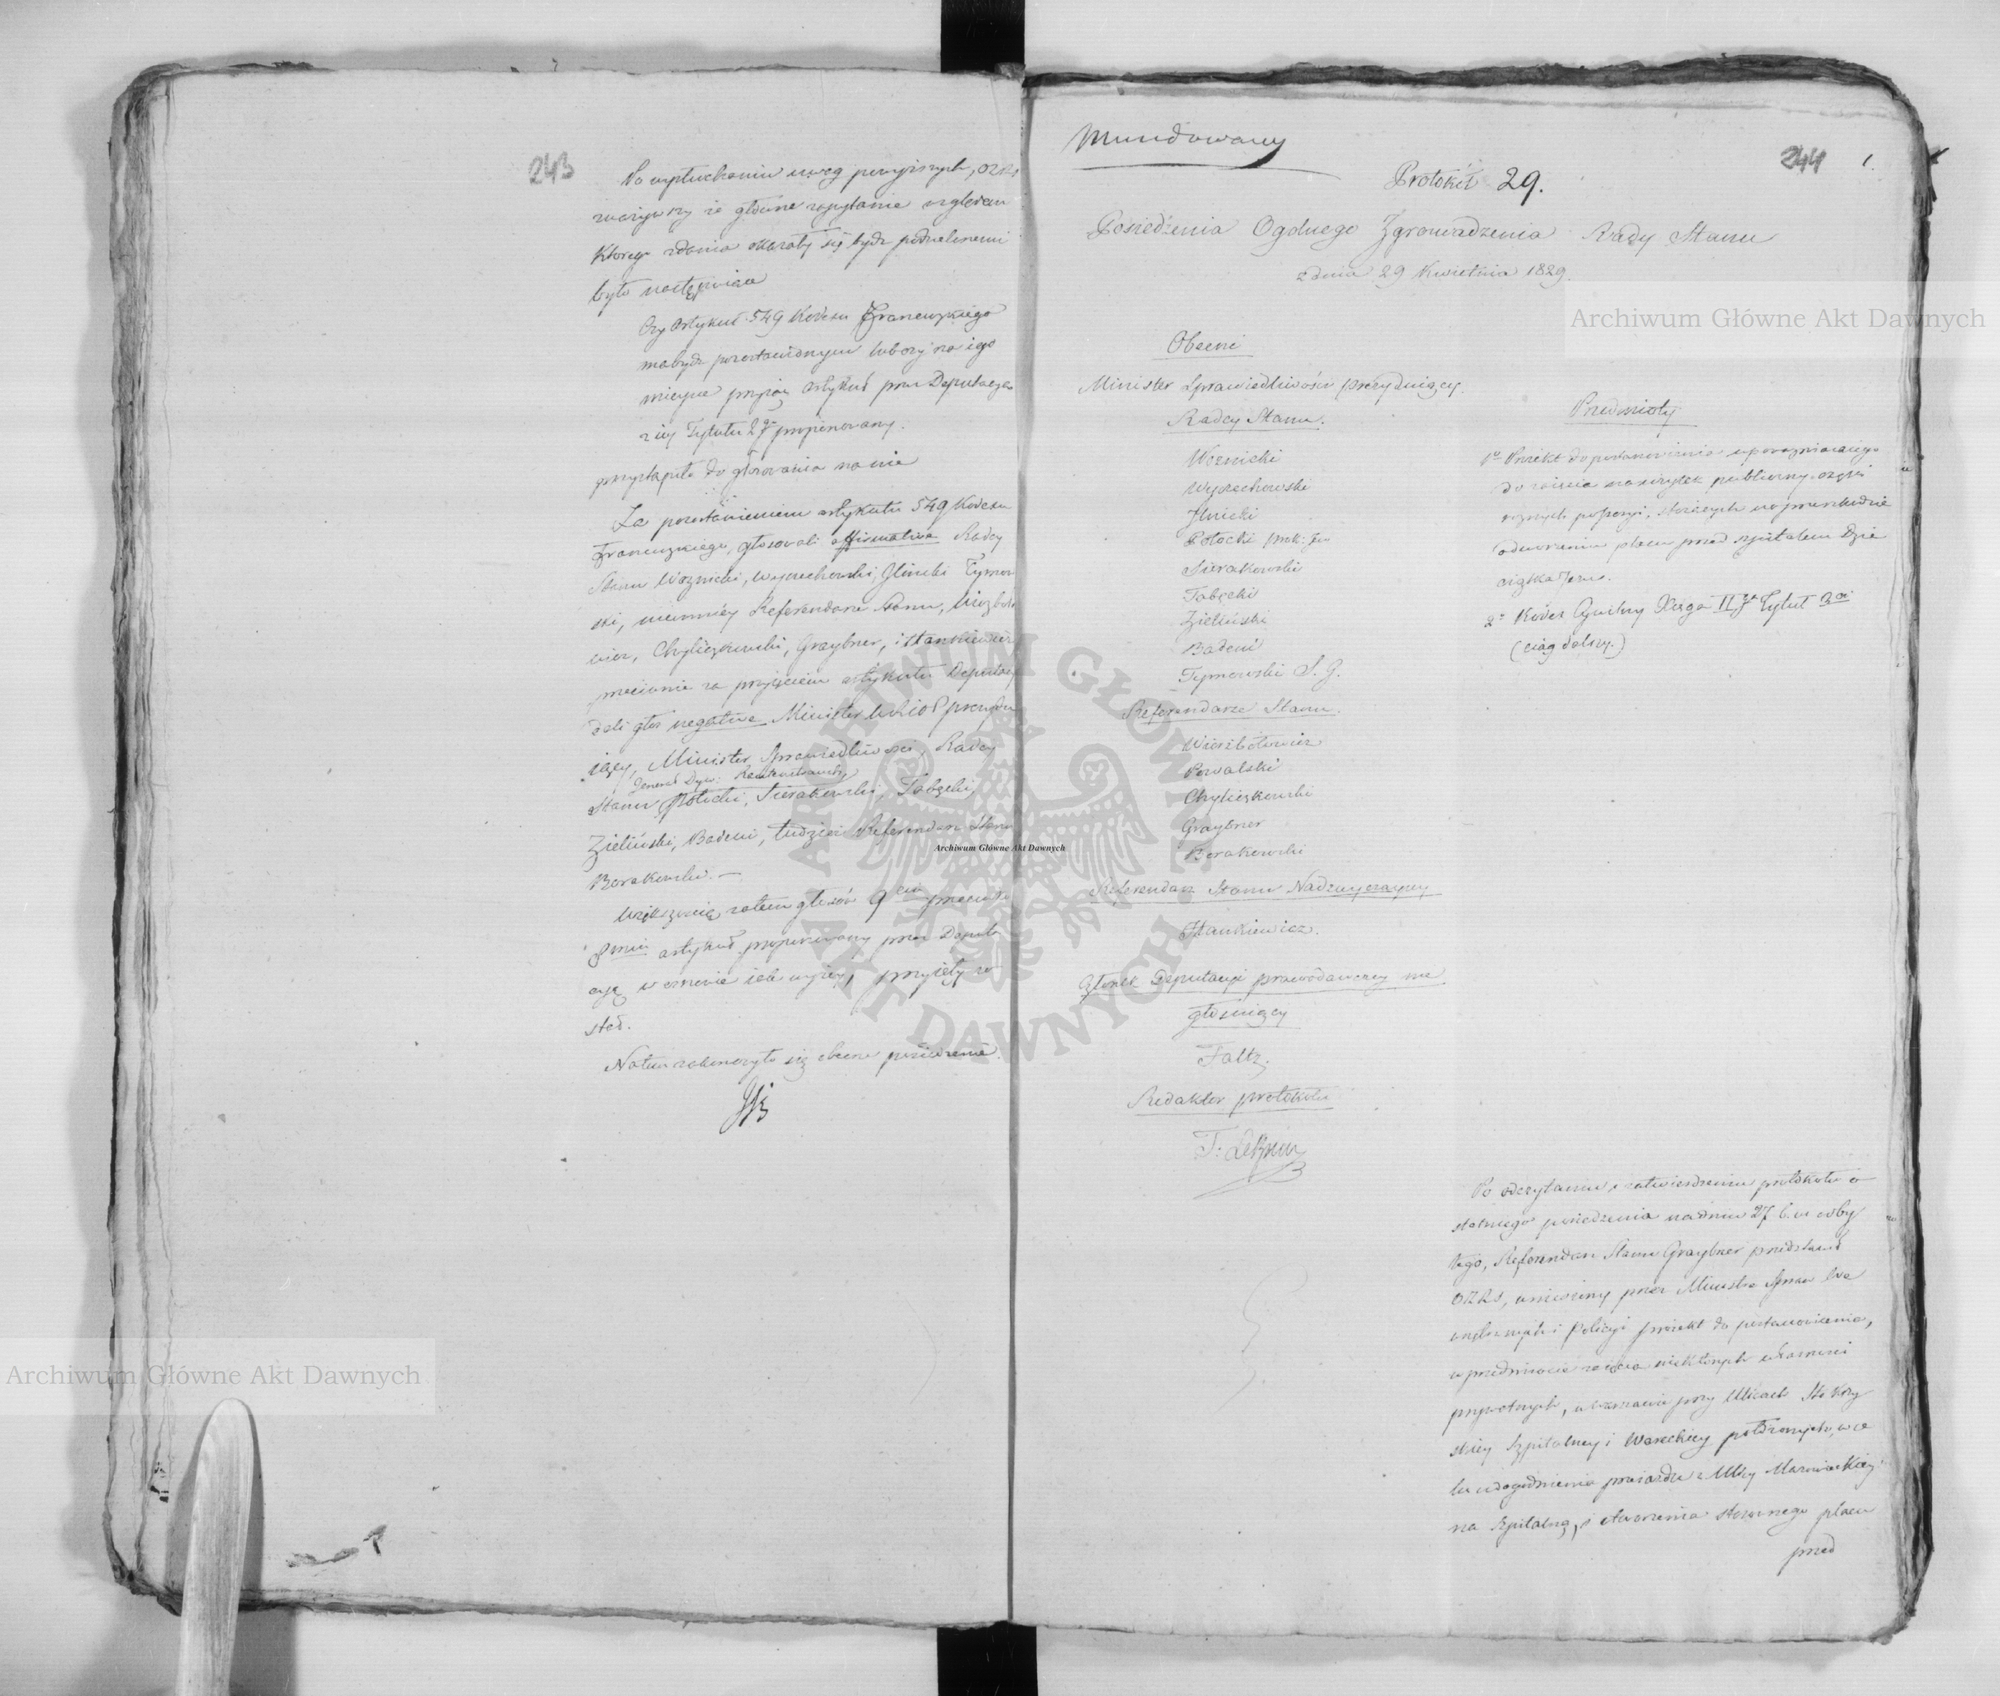 243
Po wysłuchaniu uwag powyższych, OZRS
zważywszy że główne zapytanie względem
którego zdania okazały się bydź podzielonemi
było następujące
Czy Artykuł 549 Kodexu Francuzkiego
ma bydź pozostawionym lub czy na jego
miejsce przyjąć artykuł przez Deputacyą
z jej Tytułu 2go proponowany.
przystąpiło do głosowania na nie
Za pozostawieniem artykułu 549 Kodexu
Francuzkiego, głosowali affirmative Radcy
Stanu Woznicki, Wyczechowski, Glinicki Tymow
ski, niemniey Referendarze Stanu, Wierzboło
wicz, Chyliczkowski, Graybner, i Stankiewicz,
przeciwnie za przyjęciem artykułu Deputacyi
dali głos negative Minister prezydu
iący, Minister Sprawiedliwości, Radcy
Generał Dyw: Rautenstrauch
Stanu, Potocki, Sierakowski, Tabęcki,
Zieliński, Badeni, tudzież Referendarz Stanu
Borakowski. —
Większością zatem głosów 9ciu przeciwko
8miu artykuł proponowany przez Deputa
cyą w osnowie jak wyżey, przyjęty zo
stał.
Na tem zakończyło się obecne posiedzenie.
Mundowany
244
1.
Protokół 29.
Posiedzenia Ogolnego Zgromadzenia Rady Stanu
z dnia 29 Kwietnia 1829.
Obecni
Minister Sprawiedliwości prezyduiący.
Radcy Stanu.
Woznicki
Wyczechowski
Glinicki
Potocki
Sierakowski
Tabęcki
Zieliński
Badeni
Tymowski S. G.
Referendarze Stanu.
Wierzbołowicz
Kowalski
Chyliczkowski
Graybner
Borakowski
Referendarz Stanu Nadzwyczayny
Stankiewicz.
Członek Deputacyi prawodawczey nie
głosuiący
Faltz.
Redaktor protokółu
Przedmioty
1o Proiekt do postanowienia upoważniaiącego
do zaięcia na użytek publiczny części
rożnych possesyi, służących do
otworzenia placu przed szpitalem Dzie
ciątka Jezus.
2o Kodex Cywilny Xięga IIga Tytuł 2gi
(ciąg dalszy.)
Po odczytaniu i zatwierdzeniu protokołu o
statniego posiedzenia na dniu 27 b. m odby
tego, Referendarz Stanu Graybner przedstawił
OZRS, wniesiony przez Ministra Spraw We
wnętrznych i Policyi proiekt do postanowienia,
w przedmiocie zaięcia niektórych własności
prywatnych, w Warszawie przy Ulicach Sto Krzy
skiey Szpitalney i Wareckiey położonych, w ce
lu udogodnienia przeiazdu z Ulicy Mazowieckiey
na Szpitalną, i otworzenia stosownego placu
przed
Archiwum Główne Akt Dawnych
Archiwum Główne Akt Dawnych
Archiwum Główne Akt Dawnych
ARCHIWUM GŁÓWNE AKT DAWNYCH